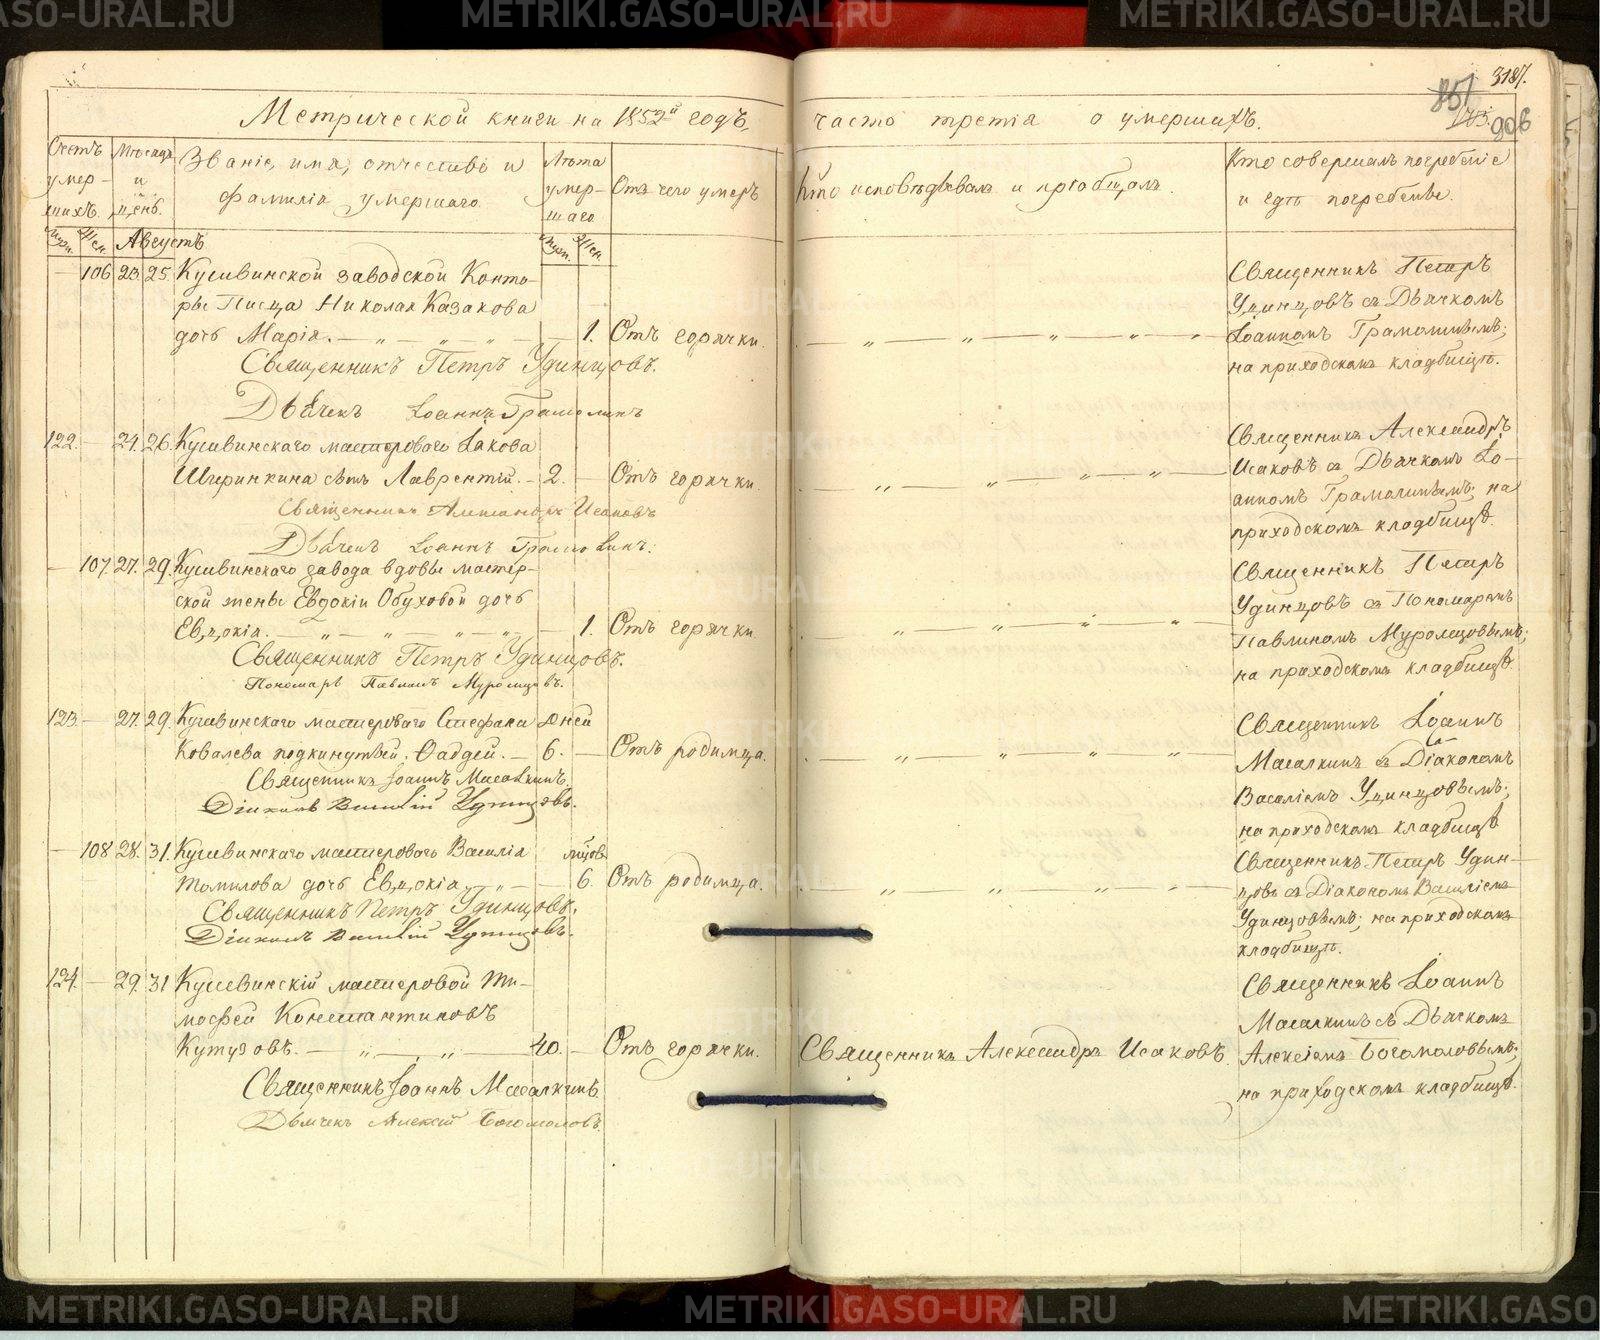 METRIKI.GASO-URAL.RU
3187.
851
906
Метрической книги на 1852й годъ,
часть третія о умершихъ.
Счетъ умер-шихъ.
Муж. Жен.
Мѣсяцъ и день.
Августъ
Званіе, имя, отчество и
фамилія умершаго.
Лѣта умер-шаго
Муж. Жен.
Отъ чего умеръ
Кто исповѣдывалъ и пріобщалъ.
Кто совершалъ погребеніе
и гдѣ погребены.
— 106 23. 25. Кушвинской заводской Конто-
ры Писца Николая Казакова
дочь Марія. — „ — „ — „ — 1. Отъ горячки.
Священникъ Петръ Удинцовъ.
Дьячекъ Іоаннъ Грамолинъ
Священникъ Петръ
Удинцовъ съ Дьячкомъ
Іоанномъ Грамолинымъ;
на приходскомъ кладбищѣ.
122. — 24. 26. Кушвинскаго мастероваго Іакова
Шперинкина сынъ Лаврентій. — 2. — Отъ горячки.
Священникъ Александръ Исаковъ
Дьячекъ Іоаннъ Грамолинъ.
Священникъ Александръ
Исаковъ съ Дьячкомъ Іо-
анномъ Грамолинымъ; на
приходскомъ кладбищѣ.
— 107. 27. 29. Кушвинскаго завода вдовы мастер-
ской жены Евдокіи Обуховой дочь
Евдокія. — „ — „ — „ — 1. Отъ горячки.
Священникъ Петръ Удинцовъ.
Пономарь Павлинъ Муромцовъ.
Священникъ Петръ
Удинцовъ съ Пономаремъ
Павлиномъ Муромцовымъ;
на приходскомъ кладбищѣ.
123. — 27. 29. Кушвинскаго мастероваго Стефана дней
Ковалева подкинутый; Фаддей. — 6. — Отъ родимца.
Священникъ Іоаннъ Масалкинъ.
Діаконъ Василій Удинцовъ.
Священникъ Іоаннъ
Масалкинъ съ Діакономъ
Василіемъ Удинцовымъ;
на приходскомъ кладбищѣ
— 108 28. 31. Кушвинскаго мастероваго Василія мѣцовъ
Томилова дочь Евдокія. — „ — 6. Отъ родимца.
Священникъ Петръ Удинцовъ.
Діаконъ Василій Удинцовъ.
Священникъ Петръ Удин-
цовъ съ Діакономъ Василіемъ
Удинцовымъ; на приходскомъ
кладбищѣ.
124. — 29. 31 Кушвинскій мастеровой Ти-
мофей Константиновъ
Кутузовъ. — „ — „ — 40. — Отъ горячки. Священникъ Александръ Исаковъ.
Священникъ Іоаннъ Масалкинъ
Дьячекъ Алексій Богомоловъ.
Священникъ Іоаннъ
Масалкинъ съ Дьячкомъ
Алексіемъ Богомоловымъ;
на приходскомъ кладбищѣ.